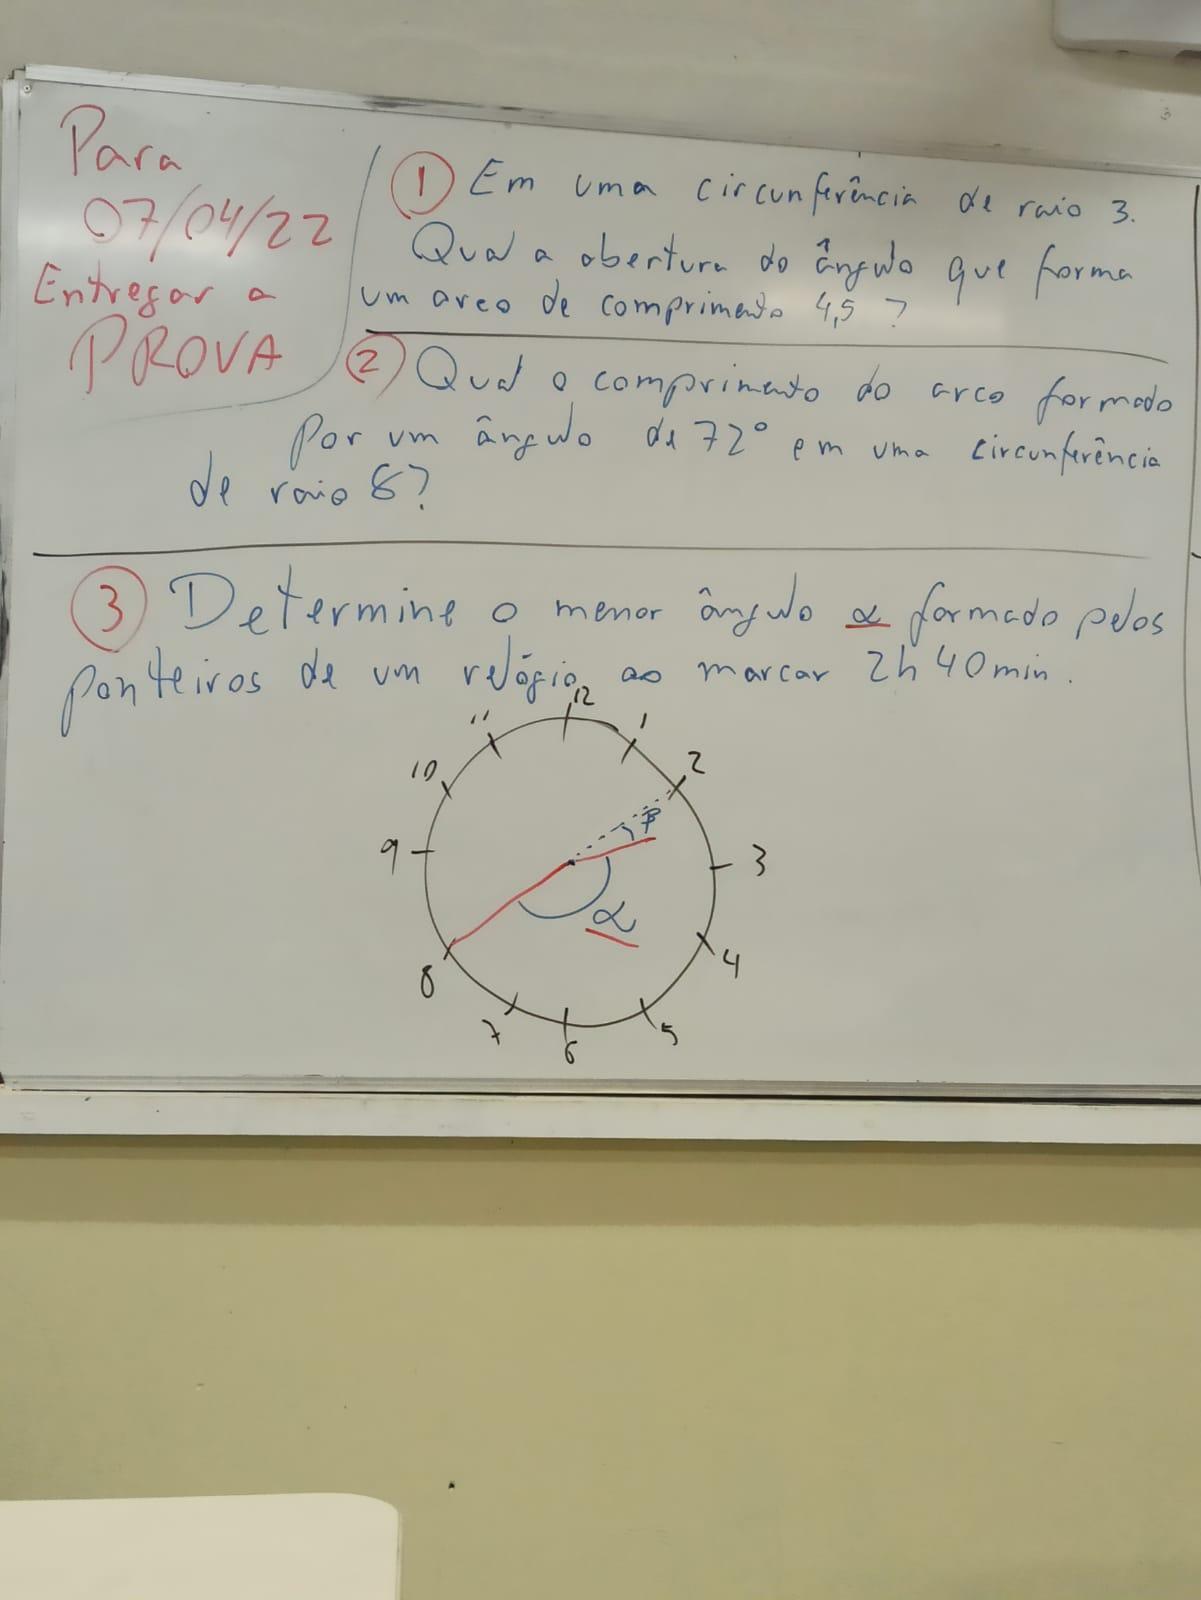 Para
07/04/22
Entregar a
PROVA
① Em uma circunferência de raio 3.
Qual a abertura do ângulo que forma
um arco de comprimento 4,5 ?
② Qual o comprimento do arco formado
por um ângulo de 72° em uma circunferência
de raio 8?
③ Determine o menor ângulo α formado pelos
ponteiros de um relógio ao marcar 2h 40min.
12
11
1
10
2
β
9
3
α
8
4
7
5
6